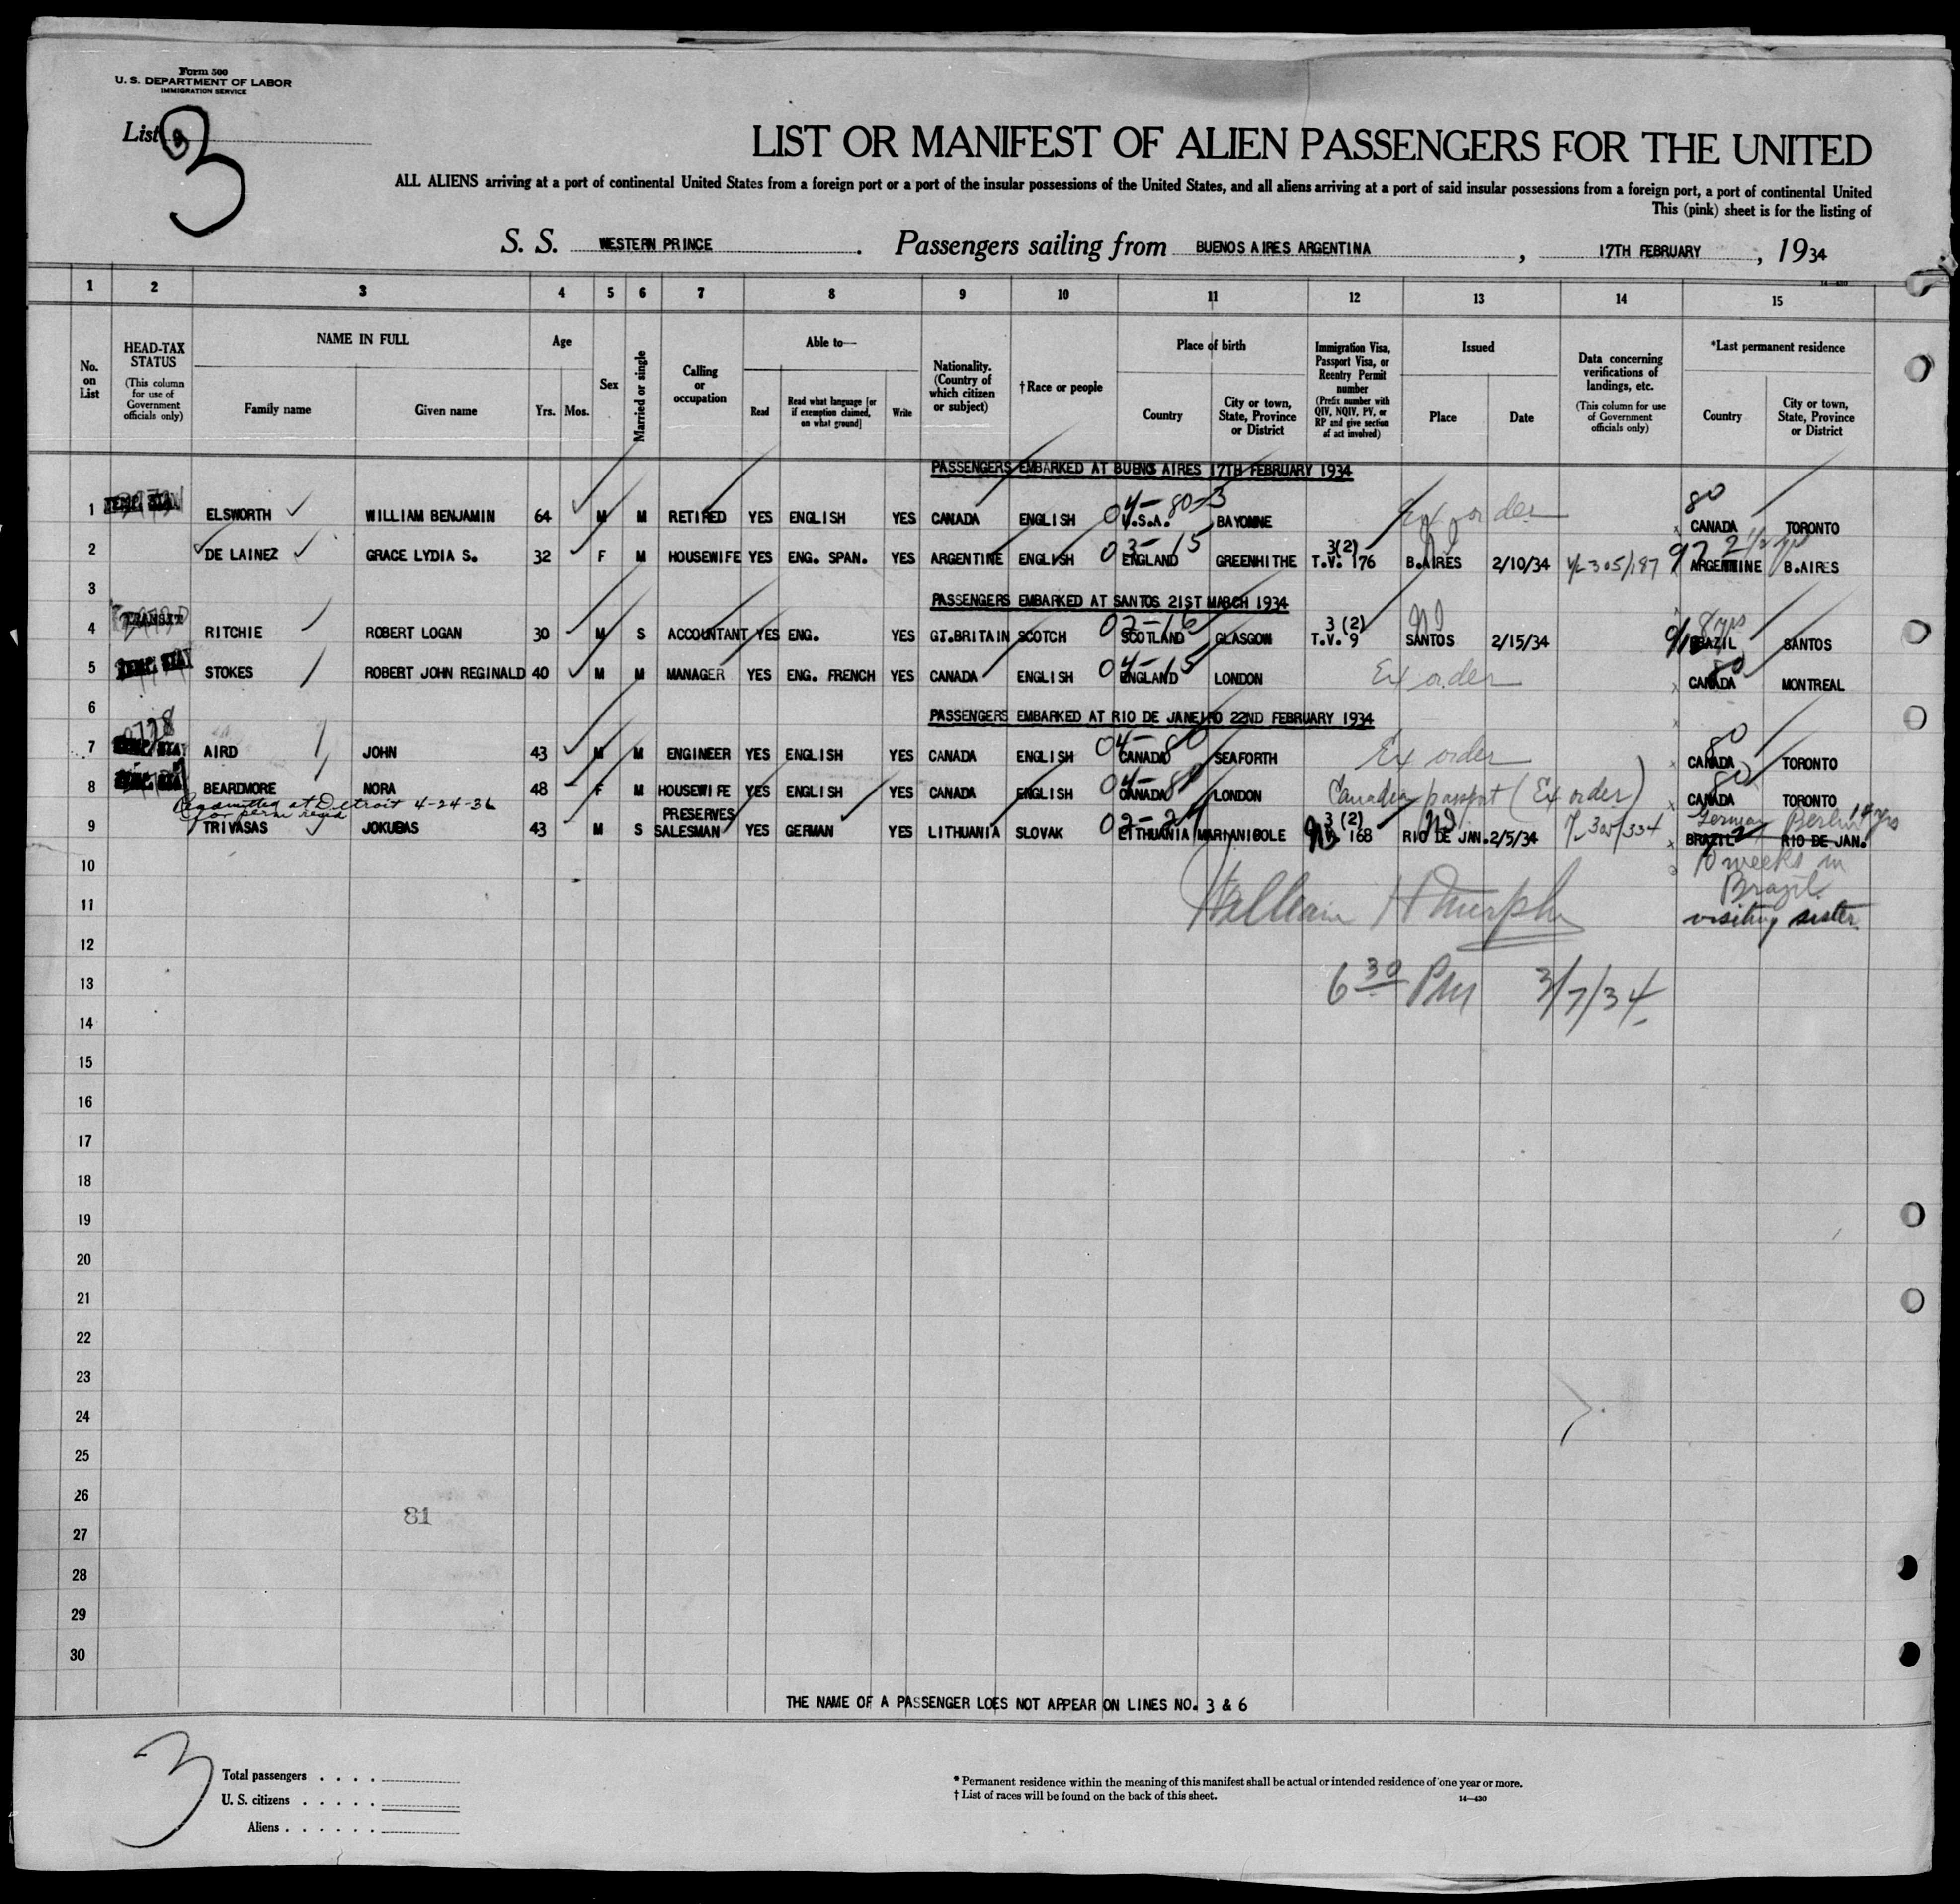 Form 500
U. S. DEPARTMENT OF LABOR
IMMIGRATION SERVICE
List 3
LIST OR MANIFEST OF ALIEN PASSENGERS FOR THE UNITED
ALL ALIENS arriving at a port of continental United States from a foreign port or a port of the insular possessions of the United States, and all aliens arriving at a port of said insular possessions from a foreign port, a port of continental United
This (pink) sheet is for the listing of
S. S. WESTERN PRINCE. Passengers sailing from BUENOS AIRES ARGENTINA, 17TH FEBRUARY, 1934
14—430
1 2 3 4 5 6 7 8 9 10 11 12 13 14 15
No. on List
HEAD-TAX STATUS (This column for use of Government officials only)
NAME IN FULL
Family name Given name
Age
Yrs. Mos.
Sex
Married or single
Calling or occupation
Able to—
Read
Read what language [or if exemption claimed, on what ground]
Write
Nationality. (Country of which citizen or subject)
†Race or people
Place of birth
Country
City or town, State, Province or District
Immigration Visa, Passport Visa, or Reentry Permit number (Prefix number with QIV, NQIV, PV, or RP and give section of act involved)
Issued
Place Date
Data concerning verifications of landings, etc. (This column for use of Government officials only)
*Last permanent residence
Country
City or town, State, Province or District
PASSENGERS EMBARKED AT BUENOS AIRES 17TH FEBRUARY 1934
04-80-3 80
1 TEMP. STAY ELSWORTH WILLIAM BENJAMIN 64 M M RETIRED YES ENGLISH YES CANADA ENGLISH U.S.A. BAYONNE Ex order CANADA TORONTO
03-15 3(2) 97 2 1/2 yrs
2 DE LAINEZ GRACE LYDIA S. 32 F M HOUSEWIFE YES ENG. SPAN. YES ARGENTINE ENGLISH ENGLAND GREENHITHE T.V. 176 B.AIRES 2/10/34 V/L 305/187 ARGENTINE B.AIRES
3 PASSENGERS EMBARKED AT SANTOS 21ST MARCH 1934
02-16 3 (2) 8 yrs
4 TRANSIT RITCHIE ROBERT LOGAN 30 M S ACCOUNTANT YES ENG. YES GT.BRITAIN SCOTCH SCOTLAND GLASGOW T.V. 9 SANTOS 2/15/34 BRAZIL SANTOS
04-15 80
5 TEMP. STAY STOKES ROBERT JOHN REGINALD 40 M M MANAGER YES ENG. FRENCH YES CANADA ENGLISH ENGLAND LONDON Ex order CANADA MONTREAL
6 PASSENGERS EMBARKED AT RIO DE JANEIRO 22ND FEBRUARY 1934
04-80 80
7 TEMP. STAY AIRD JOHN 43 M M ENGINEER YES ENGLISH YES CANADA ENGLISH CANADA SEAFORTH Ex order CANADA TORONTO
04-80 80
8 TEMP. STAY BEARDMORE NORA 48 F M HOUSEWIFE YES ENGLISH YES CANADA ENGLISH CANADA LONDON Canadian passport (Ex order) CANADA TORONTO
Readmitted at Detroit 4-24-36
for perm resid
PRESERVES 3 (2) Germany Berlin 14 yrs
9 TRIVASAS JOKUBAS 43 M S SALESMAN YES GERMAN YES LITHUANIA SLOVAK LITHUANIA MARIANIBOLE 168 RIO DE JAN. 2/5/34 305/334 BRAZIL RIO DE JAN.
10 10 weeks in
Brazil
11 William H Murphy visiting sister
12
13 6 30 PM 3/7/34
14
15
16
17
18
19
20
21
22
23
24
25
26
81
27
28
29
30
THE NAME OF A PASSENGER LOES NOT APPEAR ON LINES NO. 3 & 6
3
Total passengers . . . .
U. S. citizens . . . . .
Aliens . . . . . .
* Permanent residence within the meaning of this manifest shall be actual or intended residence of one year or more.
† List of races will be found on the back of this sheet.
14—430